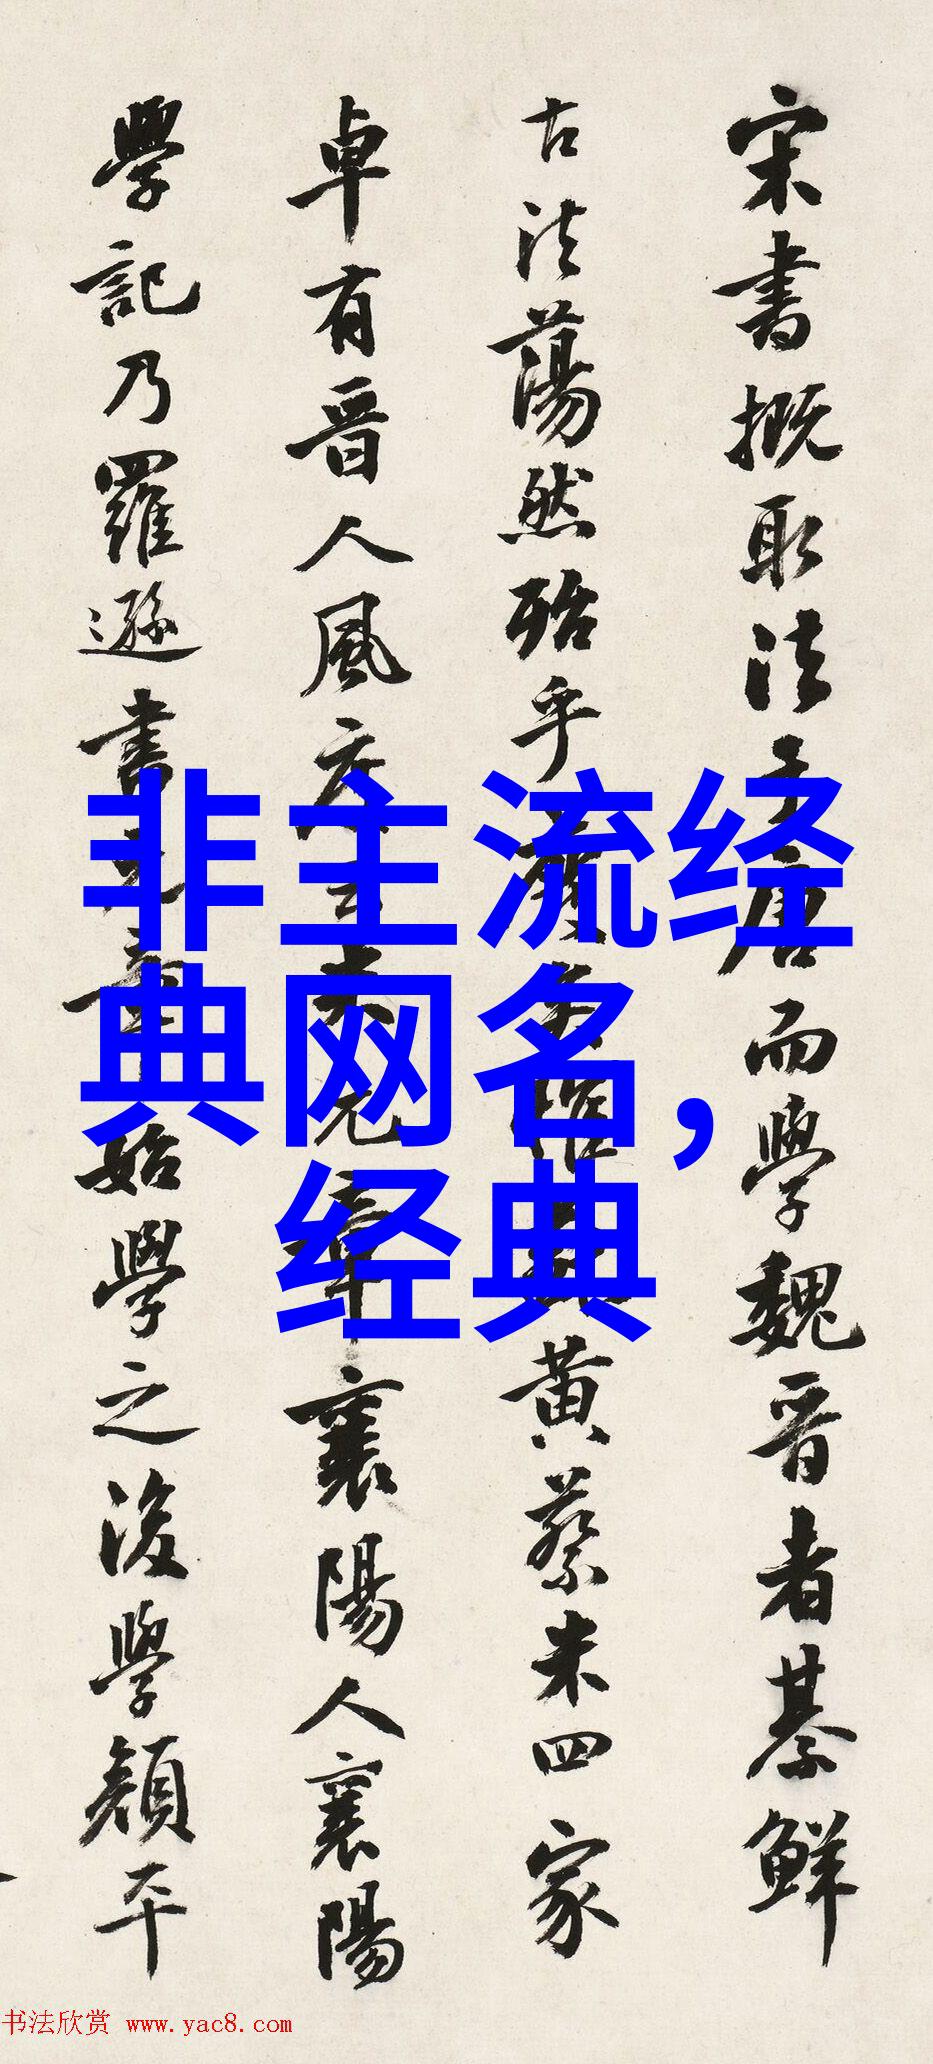 宋書概取法于唐而學魏晉者綦鮮
古法蕩然殆乎惟黃蔡米四家
卓有晉人風度云米元章襄陽人襄陽
學記乃羅遜書元章始學之後學顏平
非主流经
典网名，
经典
书法欣赏 www.yac8.com